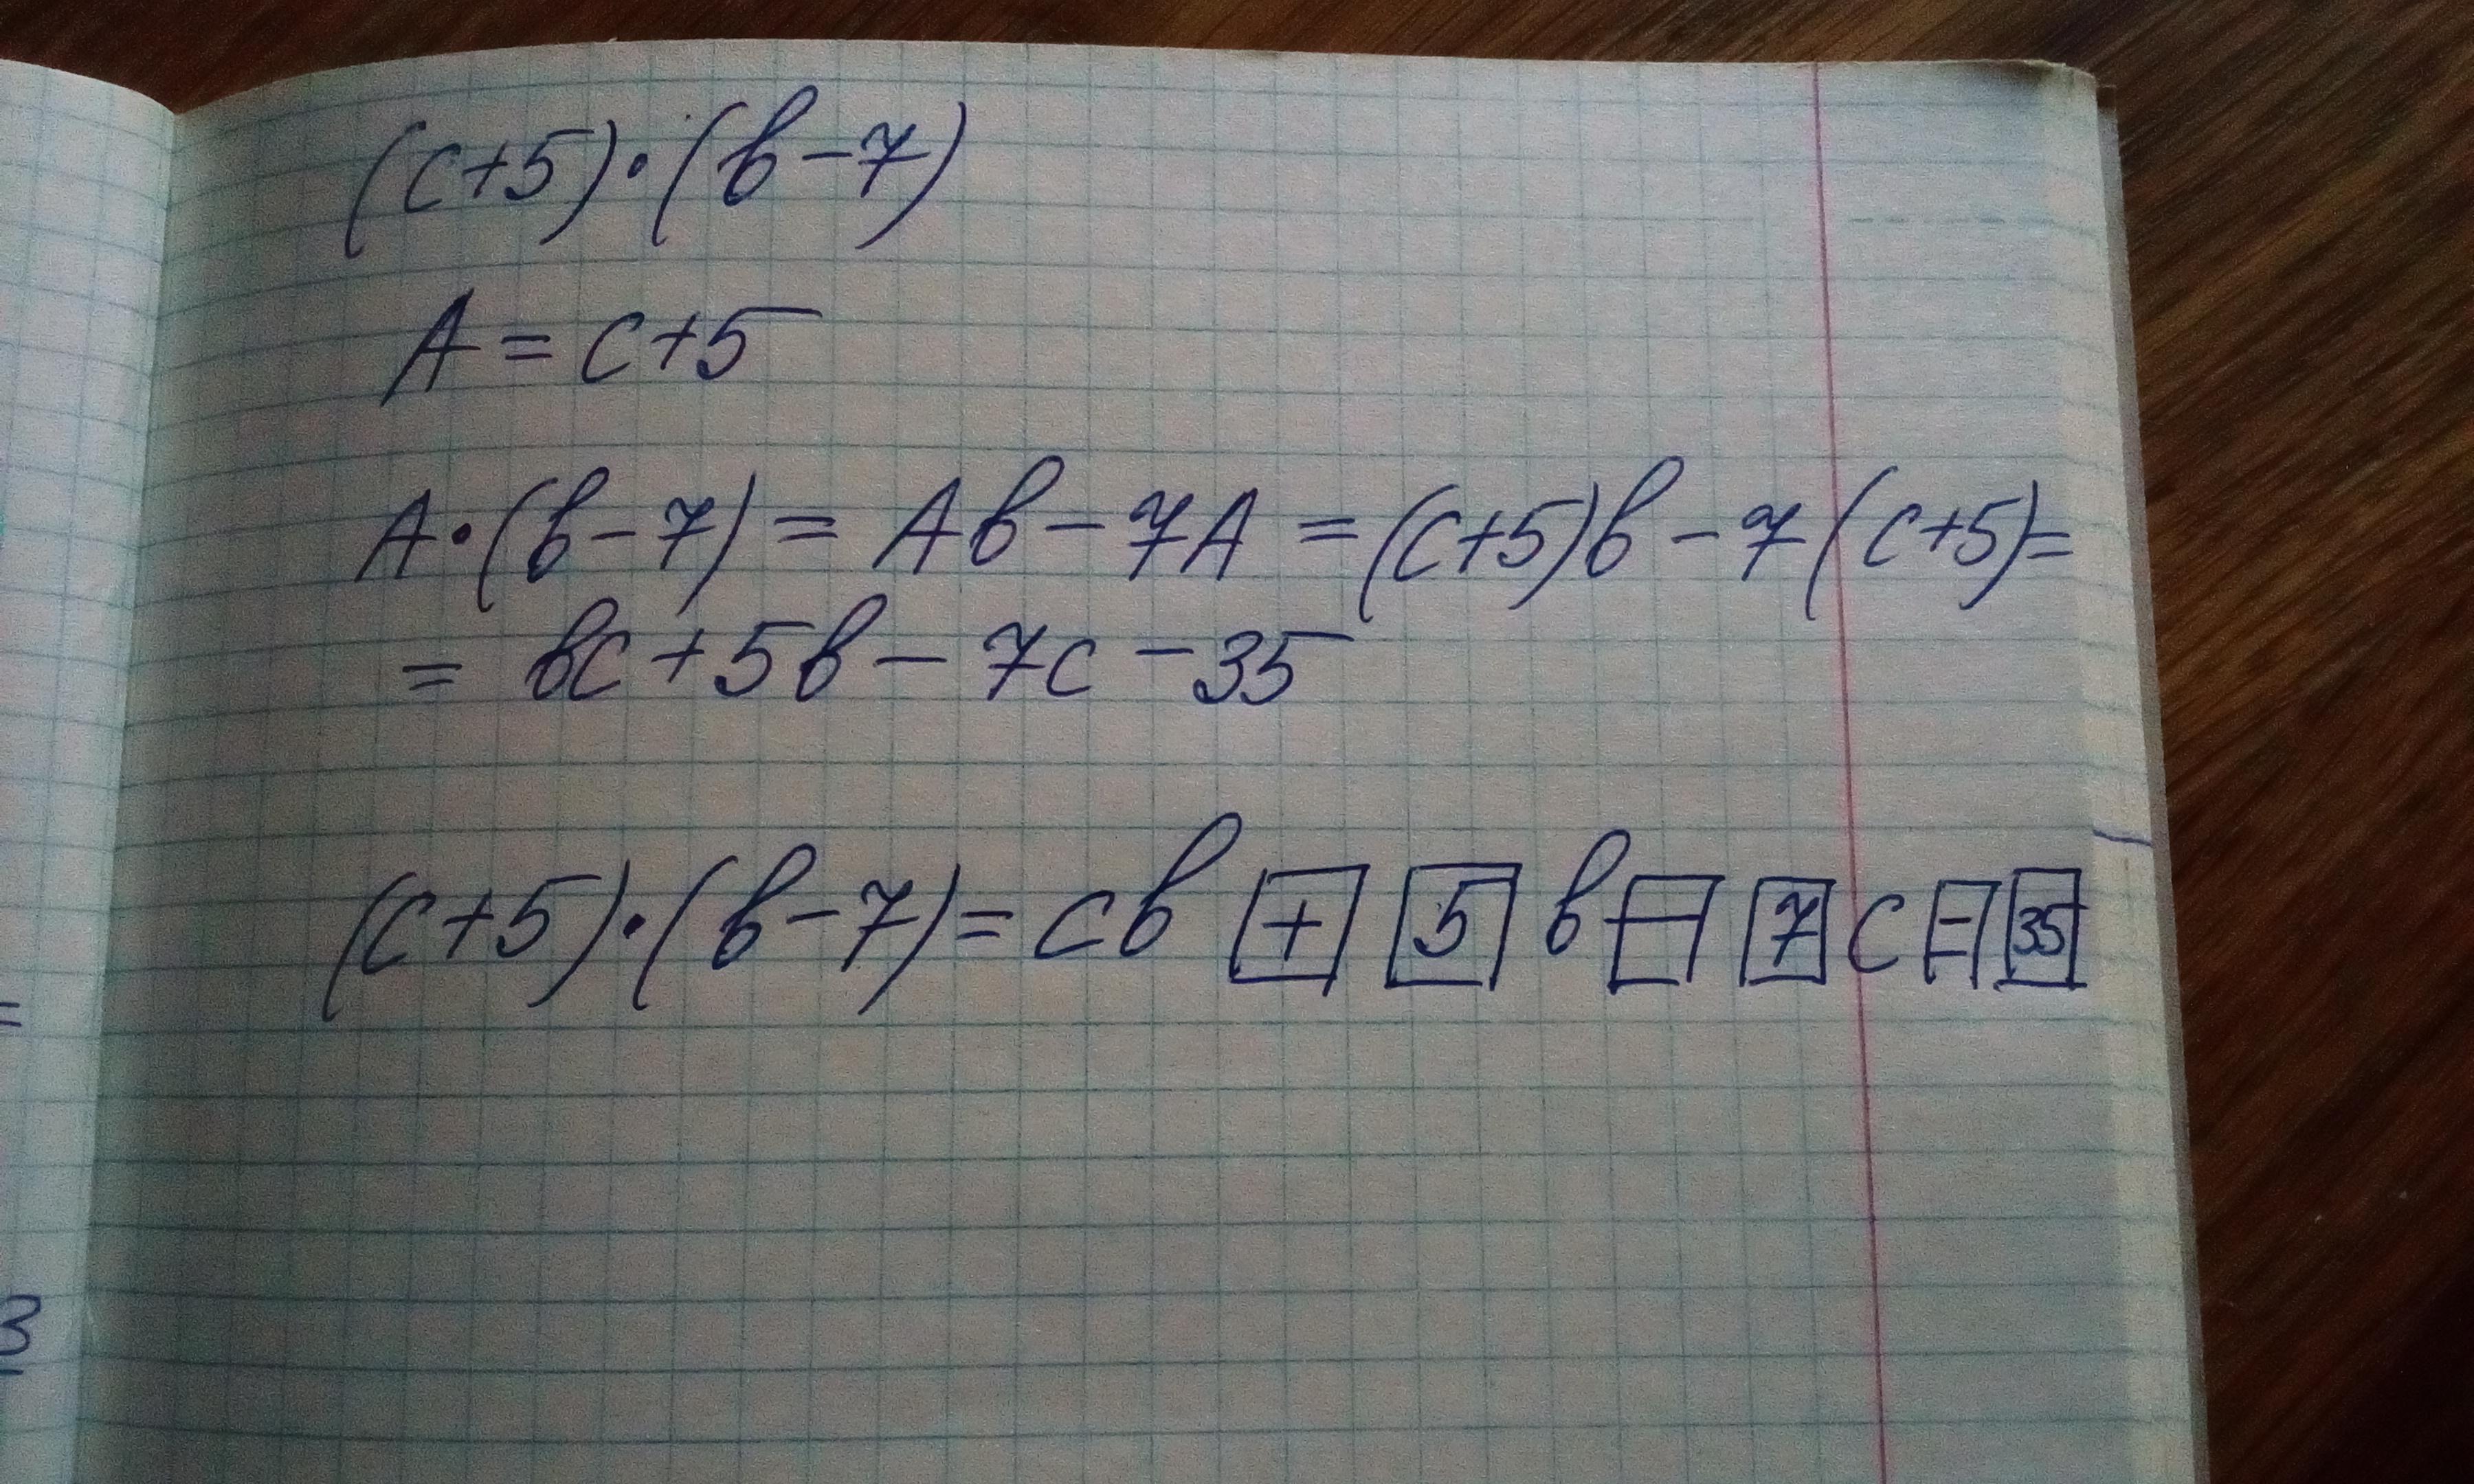 (c+5)·(b-7)
A = c+5
A·(b-7) = Ab-7A = (c+5)b-7(c+5)=
= bc+5b-7c-35
(c+5)·(b-7)= cb + 5 b - 7 c - 35
=
3